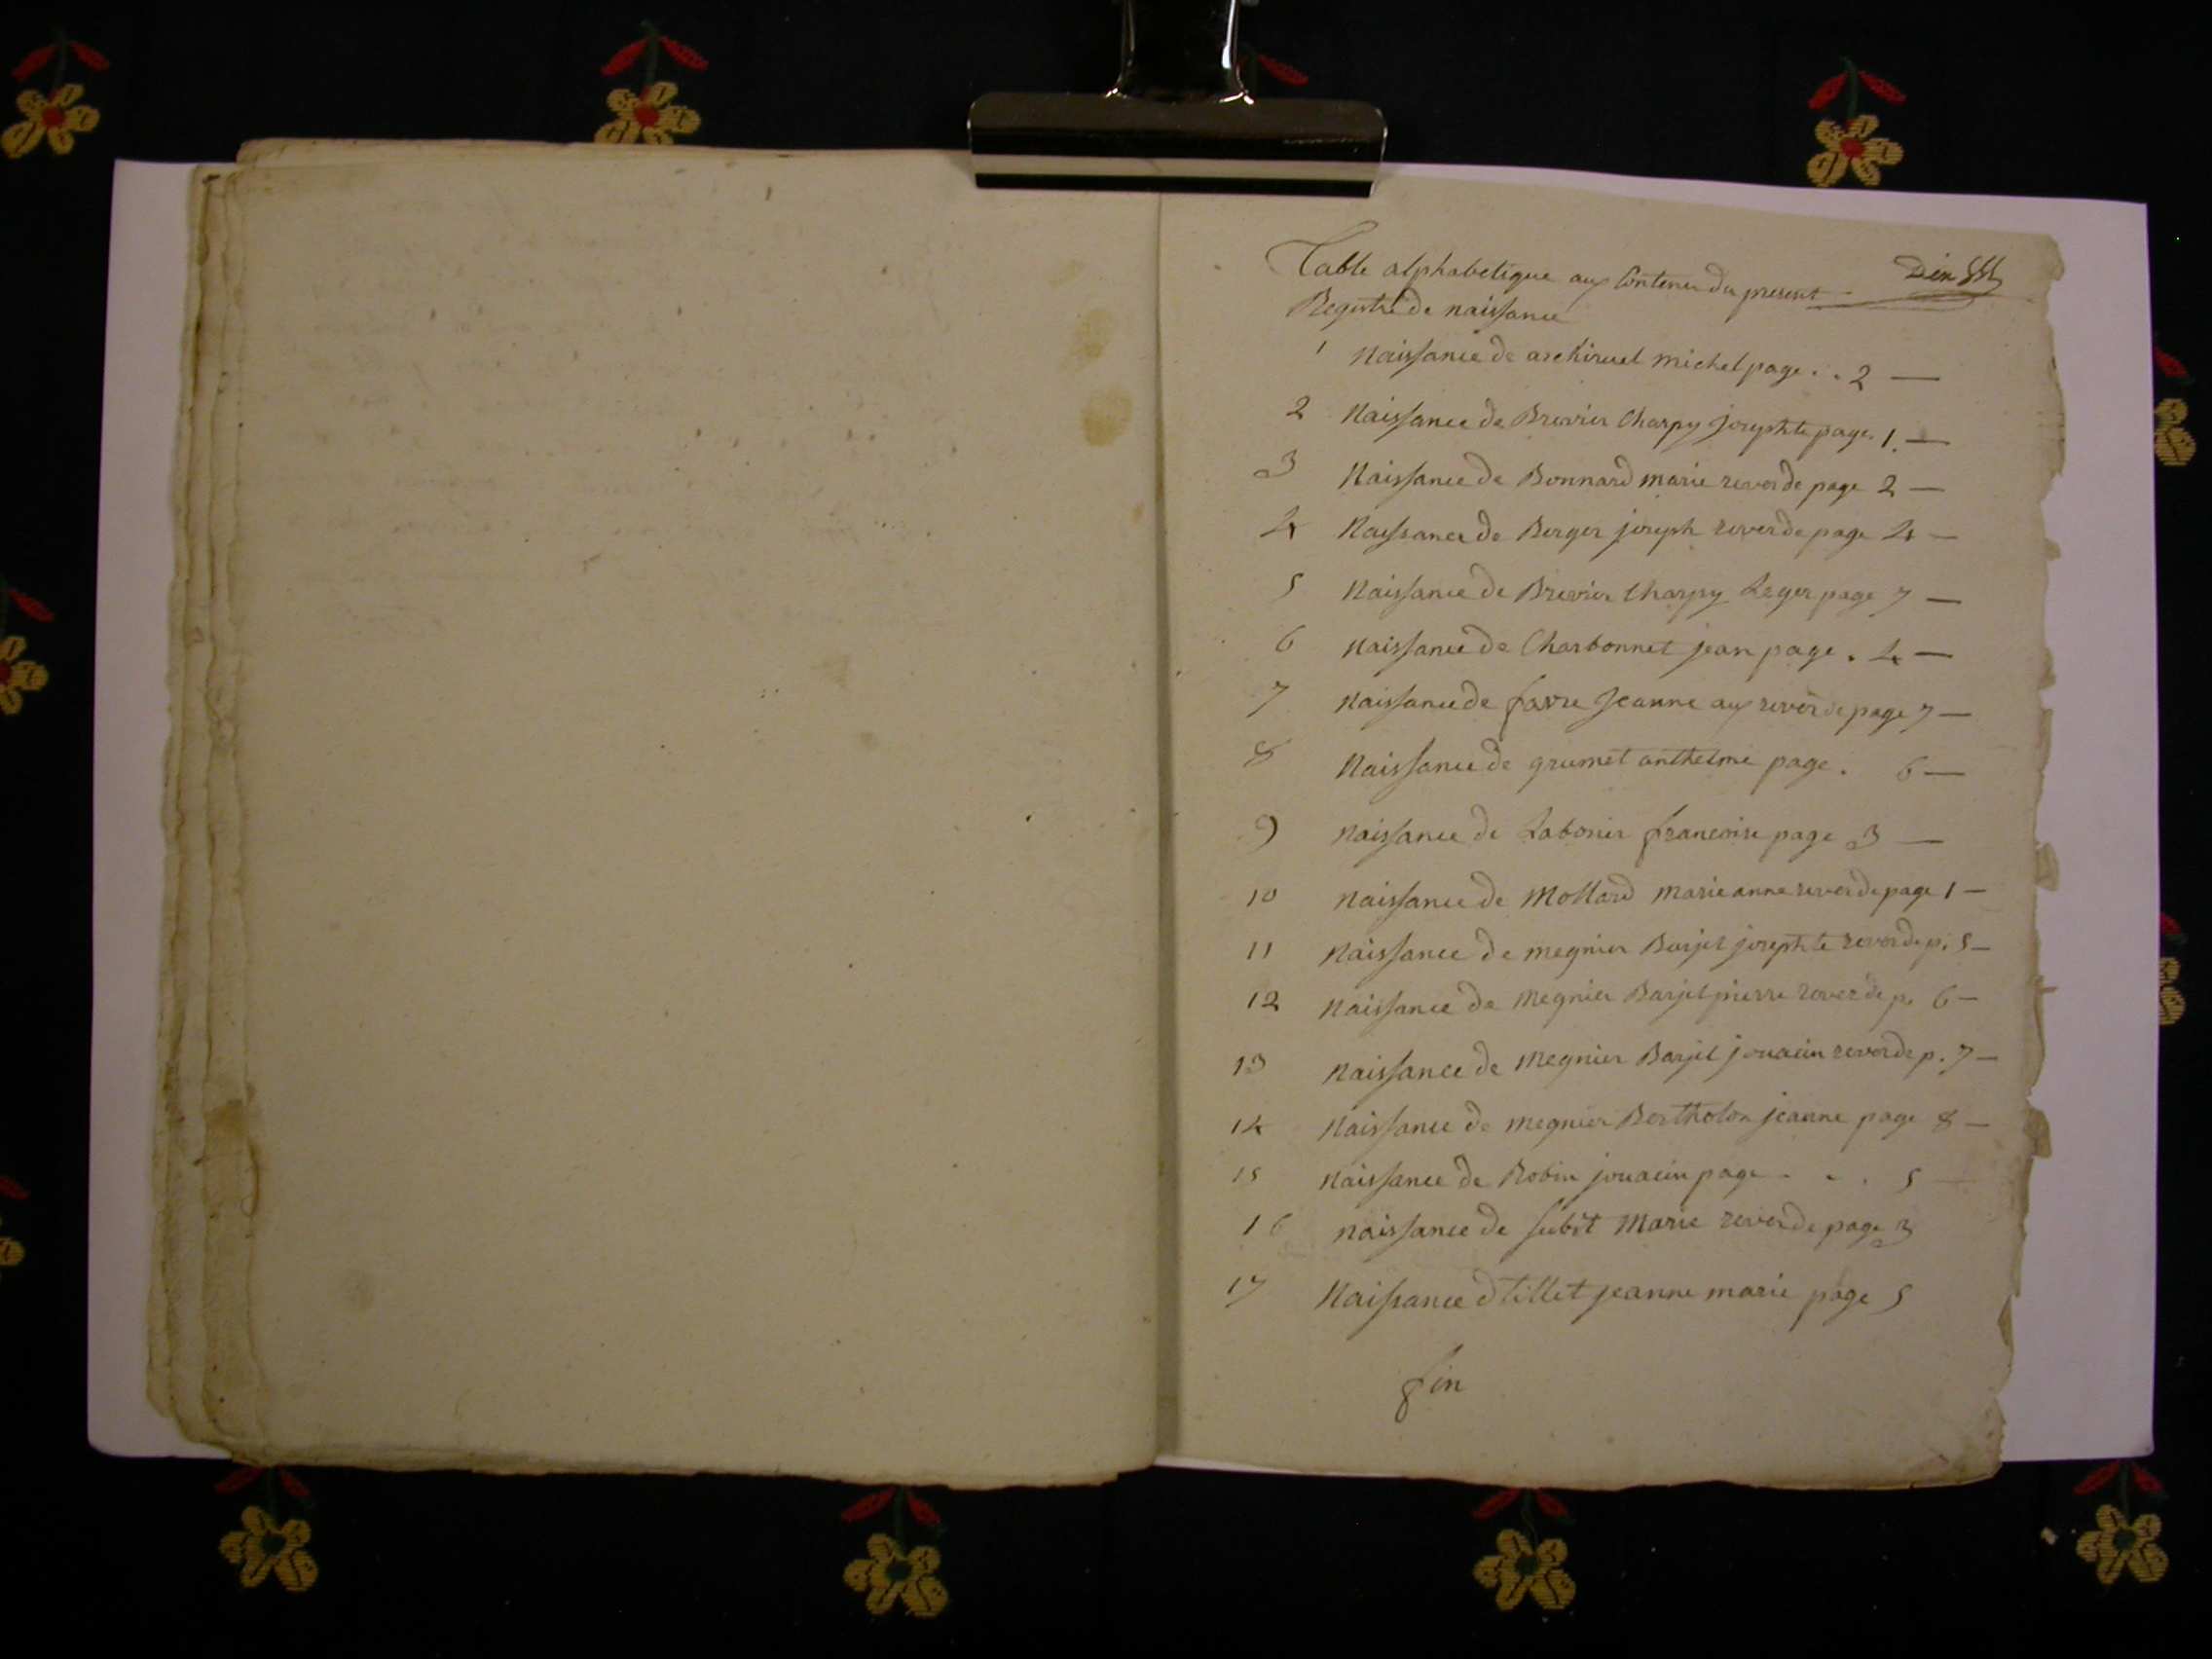 Table alphabetique aux Contenu du present
Registre de naissance
1 Naissance de archiruel michel page . . 2 —
2 Naissance de Brevier Charpy Josephte page 1. —
3 Naissance de Bonnard marie rever de page 2 —
4 Naissance de Berger joseph rever de page 4 —
5 Naissance de Brevier Charpy Leger page 7 —
6 naissance de Charbonnet jean page . 4 —
7 naissance de favre Jeanne aux rever de page 7 —
8 Naissance de grumet anthelme page . 6 —
9 naissance de Laborier francoise page 3 —
10 naissance de Mollard marie anne rever de page 1 —
11 naissance de megnier Barjet josephte rever de p. 5 —
12 naissance de megnier Barjet pierre rever de p. 6 —
13 naissance de megnier Barjet jouacin rever de p. 7 —
14 naissance de megnier Bertholon jeanne page 8 —
15 naissance de Robin jouacin page . . . 5 —
16 naissance de subit Marie rever de page 3
17 Naissance d tillet jeanne marie page 5
fin